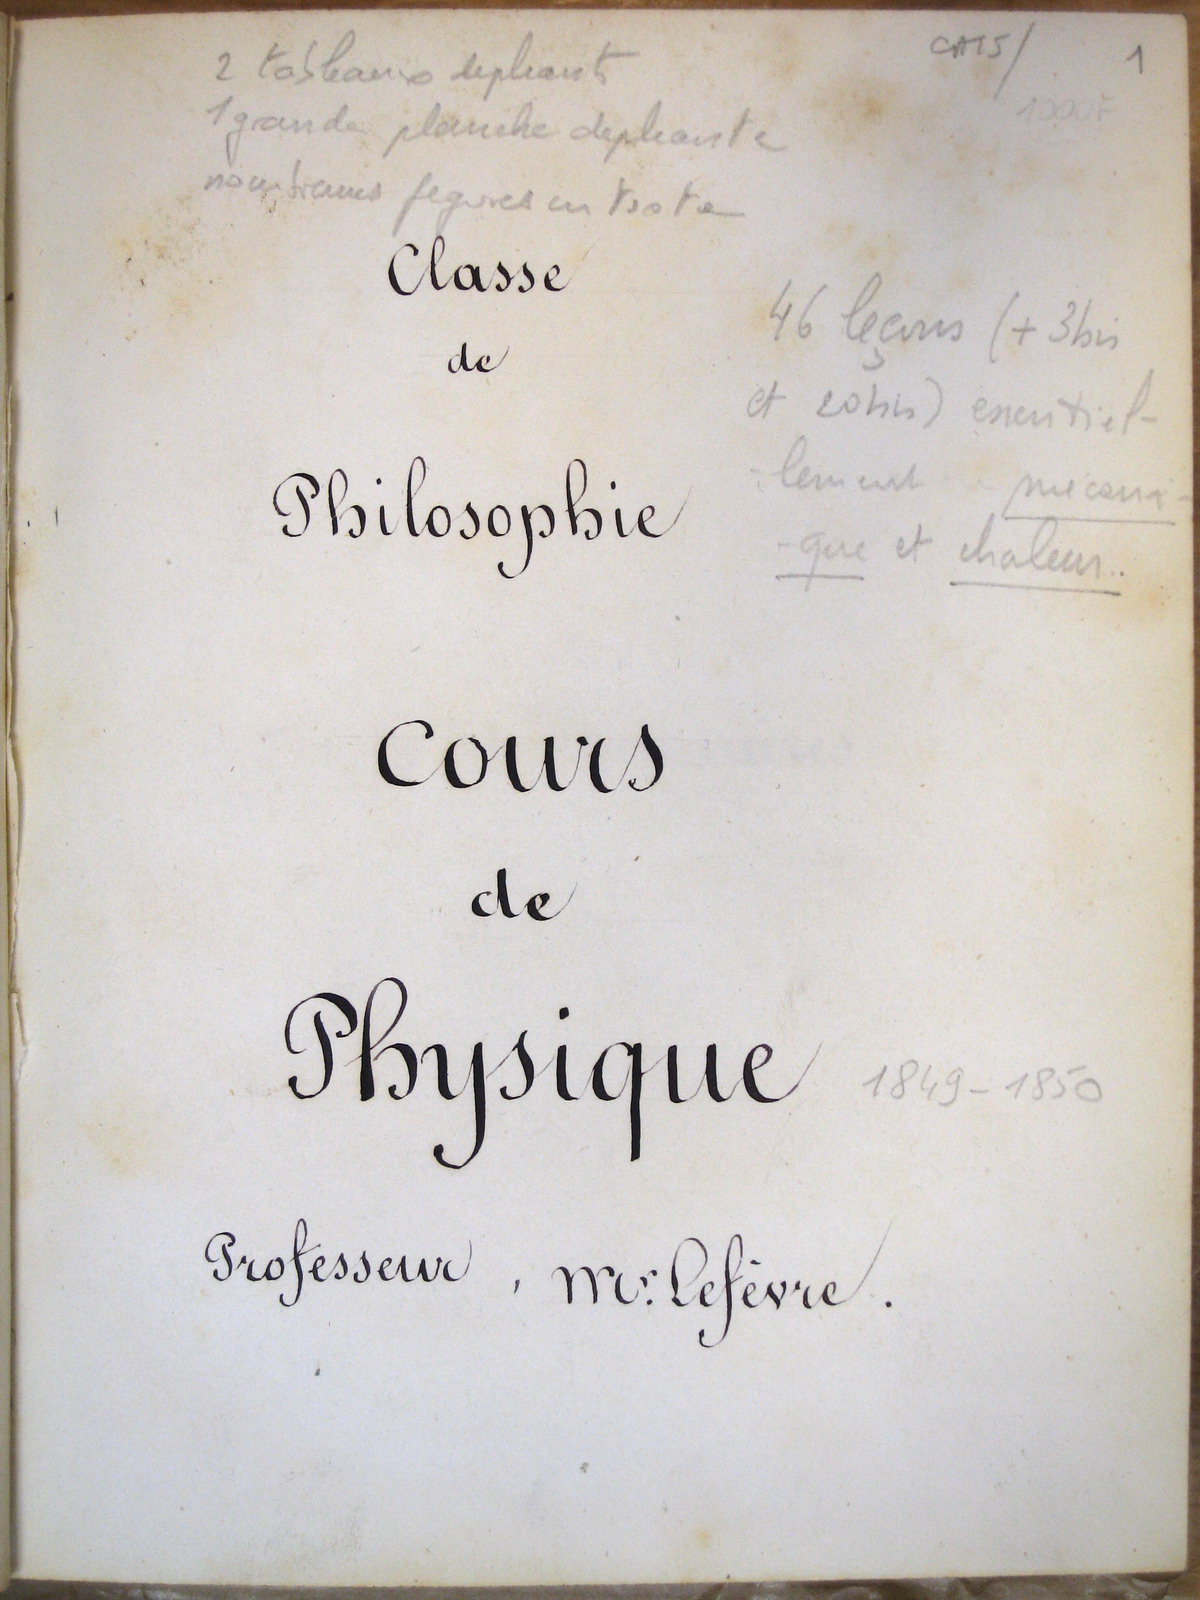 2 tableaux depliants
1 grande planche depliante
nombreuses figures in texte
CAT5/
1
Classe
de
Philosophie
46 leçons (+ 3bis
et 20bis) essentiel-
-lement mécani-
-que et chaleur..
Cours
de
Physique
1849-1850
Professeur, Mr. Lefèvre.